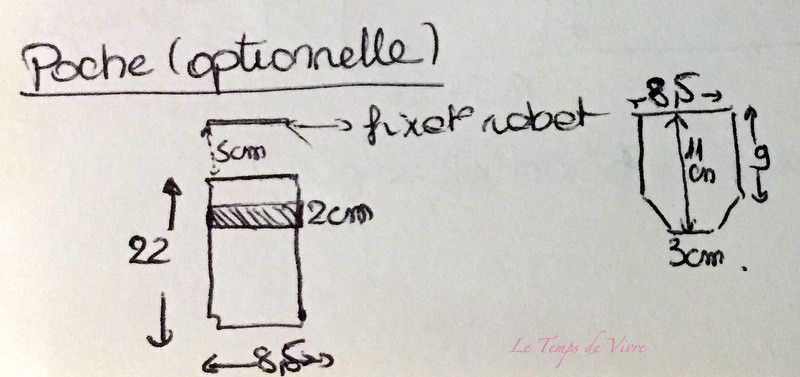 Poche (optionnelle)
fixer rabat
5cm
2cm
22
8,5
8,5
11
cm
9
3cm.
Le Temps de Vivre